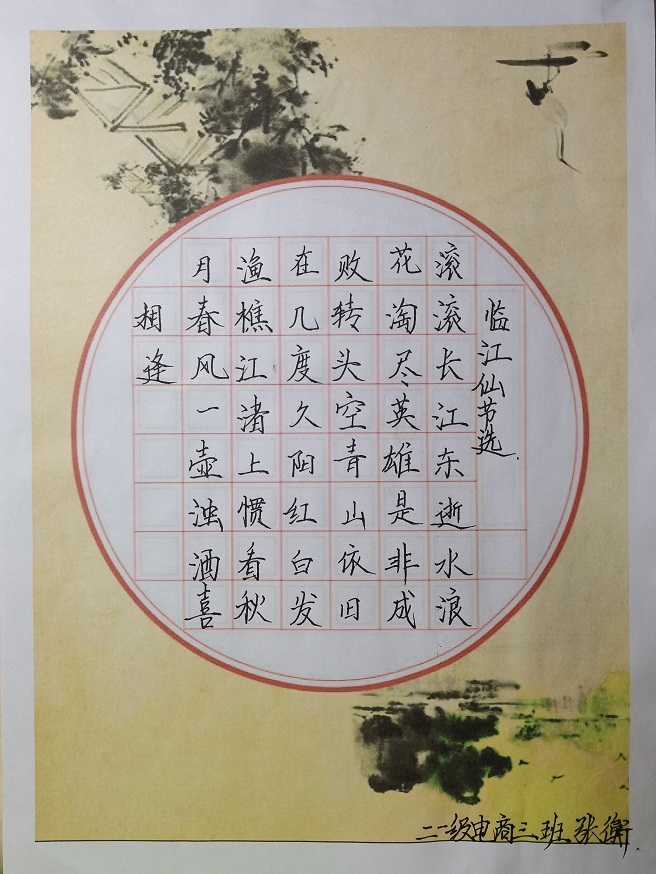 临江仙节选.
滚滚长江东逝水浪
花淘尽英雄是非成
败转头空青山依旧
在几度久阳红白发
渔樵江渚上惯看秋
月春风一壶浊酒喜
相逢
二一级电商三班张衡.